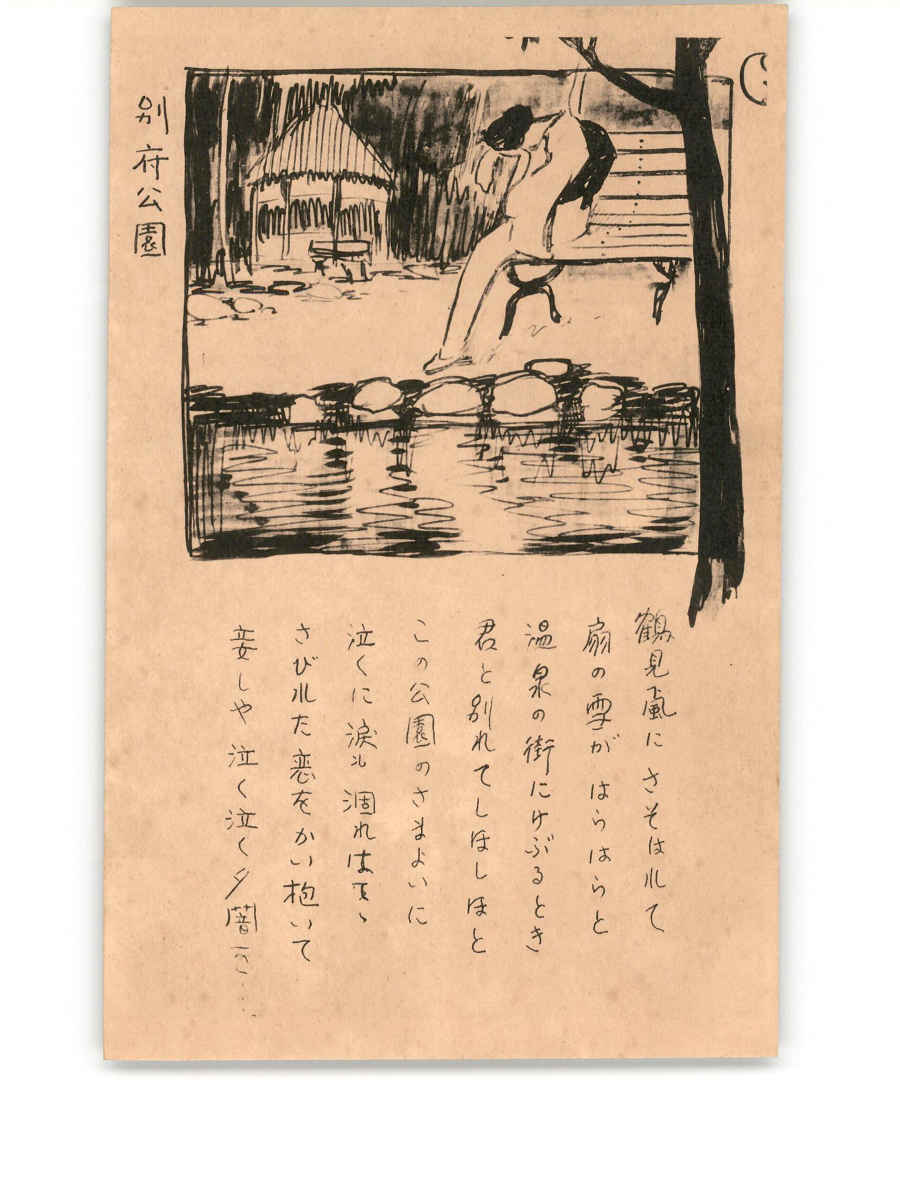 別府公園
鶴見颪に さそはれて
扇の雪が はらはらと
温泉の街にけぶるとき
君と別れてしほしほと
この公園のさまよいに
泣くに涙も 涸れはてゝ
さびれた恋をかい抱いて
妾しや 泣く泣く夕闇